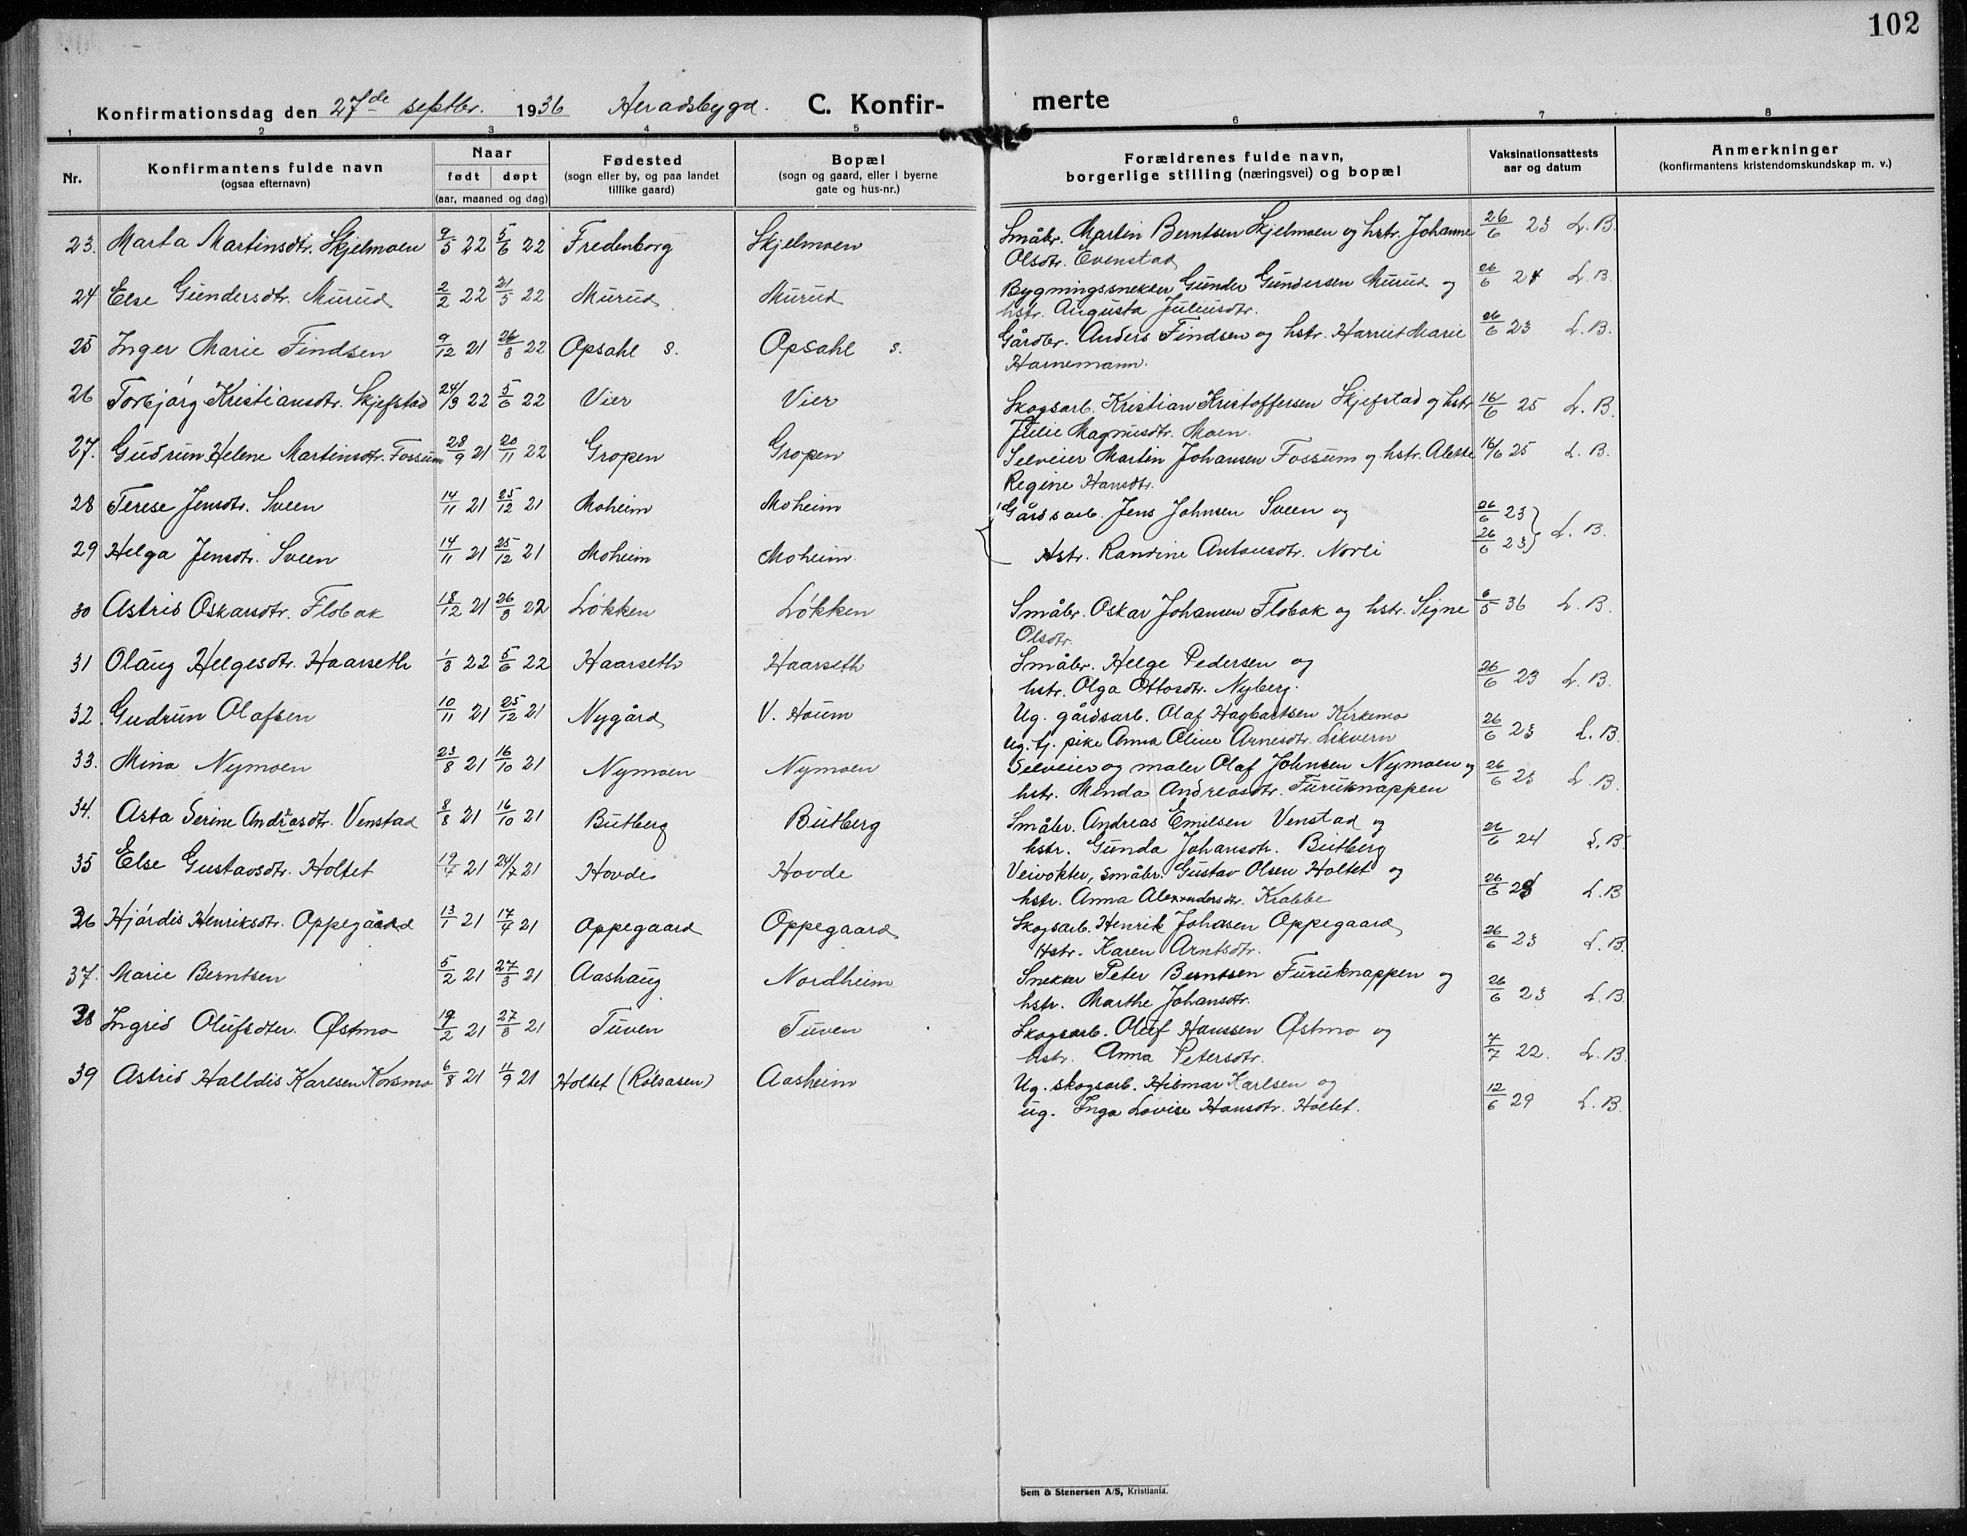 102
Konfirmationsdag den 27de septbr. 1936 Heradsbygd. C. Konfir-merte
1 2 3 4 5 6 7 8
Nr.
Konfirmantens fulde navn
(ogsaa efternavn)
Naar
født døpt
(aar, maaned og dag)
Fødested
(sogn eller by, og paa landet
tillike gaard)
Bopæl
(sogn og gaard, eller i byerne
gate og hus-nr.)
Forældrenes fulde navn,
borgerlige stilling (næringsvei) og bopæl
Vaksinationsattests
aar og datum
Anmerkninger
(konfirmantens kristendomskundskap m. v.)
23. Marta Martinsdtr. Skjelmoen 9/5 22 5/6 22 Fredenborg Skjelmoen Småbr. Martin Berntsen Skjelmoen og hstr. Johanne 26/6 23 L. B.
Olsdtr. Evenstad
24 Else Gundersdtr. Murud 2/2 22 21/5 22 Murud Murud Bygningssnekker Gunder Gundersen Murud og 26/6 24 L. B.
hstr. Augusta Juliusdtr.
25 Inger Marie Findsen 9/12 21 26/3 22 Opsahl s. Opsahl s. Gårdbr. Anders Findsen og hstr. Harriet Marie 26/6 23 L. B.
Harnemann.
26 Torbjørg Kristiansdtr. Skjefstad 24/3 22 5/6 22 Vier Vier Skogsarb. Kristian Kristoffersen Skjefstad og hstr 16/6 25 L. B.
Julie Magnusdtr. Moen.
27. Gudrun Helene Martinsdtr. Fossum 28/9 21 20/11 22 Gropen Gropen Selveier Martin Johansen Fossum og hstr. Alette 16/6 25 L. B.
Regine Hansdtr.
28 Terese Jensdtr. Sveen 14/11 21 25/12 21 Moheim Moheim Gårdsarb. Jens Johnsen Sveen og 26/6 23
29 Helga Jensdtr. Sveen 14/11 21 25/12 21 Moheim Moheim. Hstr. Randine Antonsdtr. Norli 26/6 23 L. B.
30 Astrid Oskarsdtr. Flobak 18/12 21 26/3 22 Løkken Løkken Småbr. Oskar Johansen Flobak og hstr. Signe 6/5 36 L. B.
Olsdtr.
31 Olaug Helgesdtr. Haarseth 1/3 22 5/6 22 Haarseth Haarseth Småbr. Helge Pedersen og 26/6 23 L. B.
hstr. Olga Ottosdtr. Nyberg.
32. Gudrun Olafsen 10/11 21 25/12 21 Nygård V. Houm Ug. gårdsarb. Olaf Hagbartsen Kirkemo 26/6 23 L. B.
Ug. tj. pike Anna Oline Arnesdtr. Likvern
33. Mina Nymoen 23/8 21 16/10 21 Nymoen Nymoen Selveier og maler Olaf Johnsen Nymoen og 26/6 23 L. B.
hstr. Minda Andreasdtr. Furuknappen
34. Asta Serine Andreasdtr. Venstad 8/8 21 16/10 21 Butberg Butberg Småbr. Andreas Emilsen Venstad og 26/6 24 L. B.
hstr. Gunda Johansdtr. Butberg
35 Else Gustavsdtr. Holtet 19/4 21 24/7 21 Hovde Hovde Veivokter, småbr. Gustav Olsen Holtet og 26/6 23 L. B.
hstr. Anna Alexandersdtr. Krabbe
36 Hjørdis Henriksdtr. Oppegaard 13/1 21 17/4 21 Oppegaard Oppegaard Skogsarb. Henrik Johasen Oppegaard 26/6 23 L. B.
Hstr. Karen Arntsdtr.
37. Marie Berntsen 5/2 21 27/3 21 Aashaug Nordheim Snekker Peter Berntsen Furuknappen og 26/6 23 L. B.
hstr. Marthe Johansdtr.
38 Ingrid Olufsdtr. Østmo 19/2 21 27/3 21 Tuven Tuven Skogsarb. Oluf Hanssen Østmo og 7/7 22. L. B.
hstr. Anna Petersdtr.
39 Astrid Halldis Karlsen Korsmo 6/8 21 11/9 21 Holtet (Rølsåsen) Aasheim Ug. skogsarb. Hilmar Karlsen og 12/6 29 L. B.
ug. Inga Lovise Hansdtr. Holtet.
Sem & Stenersen A/S, Kristiania.